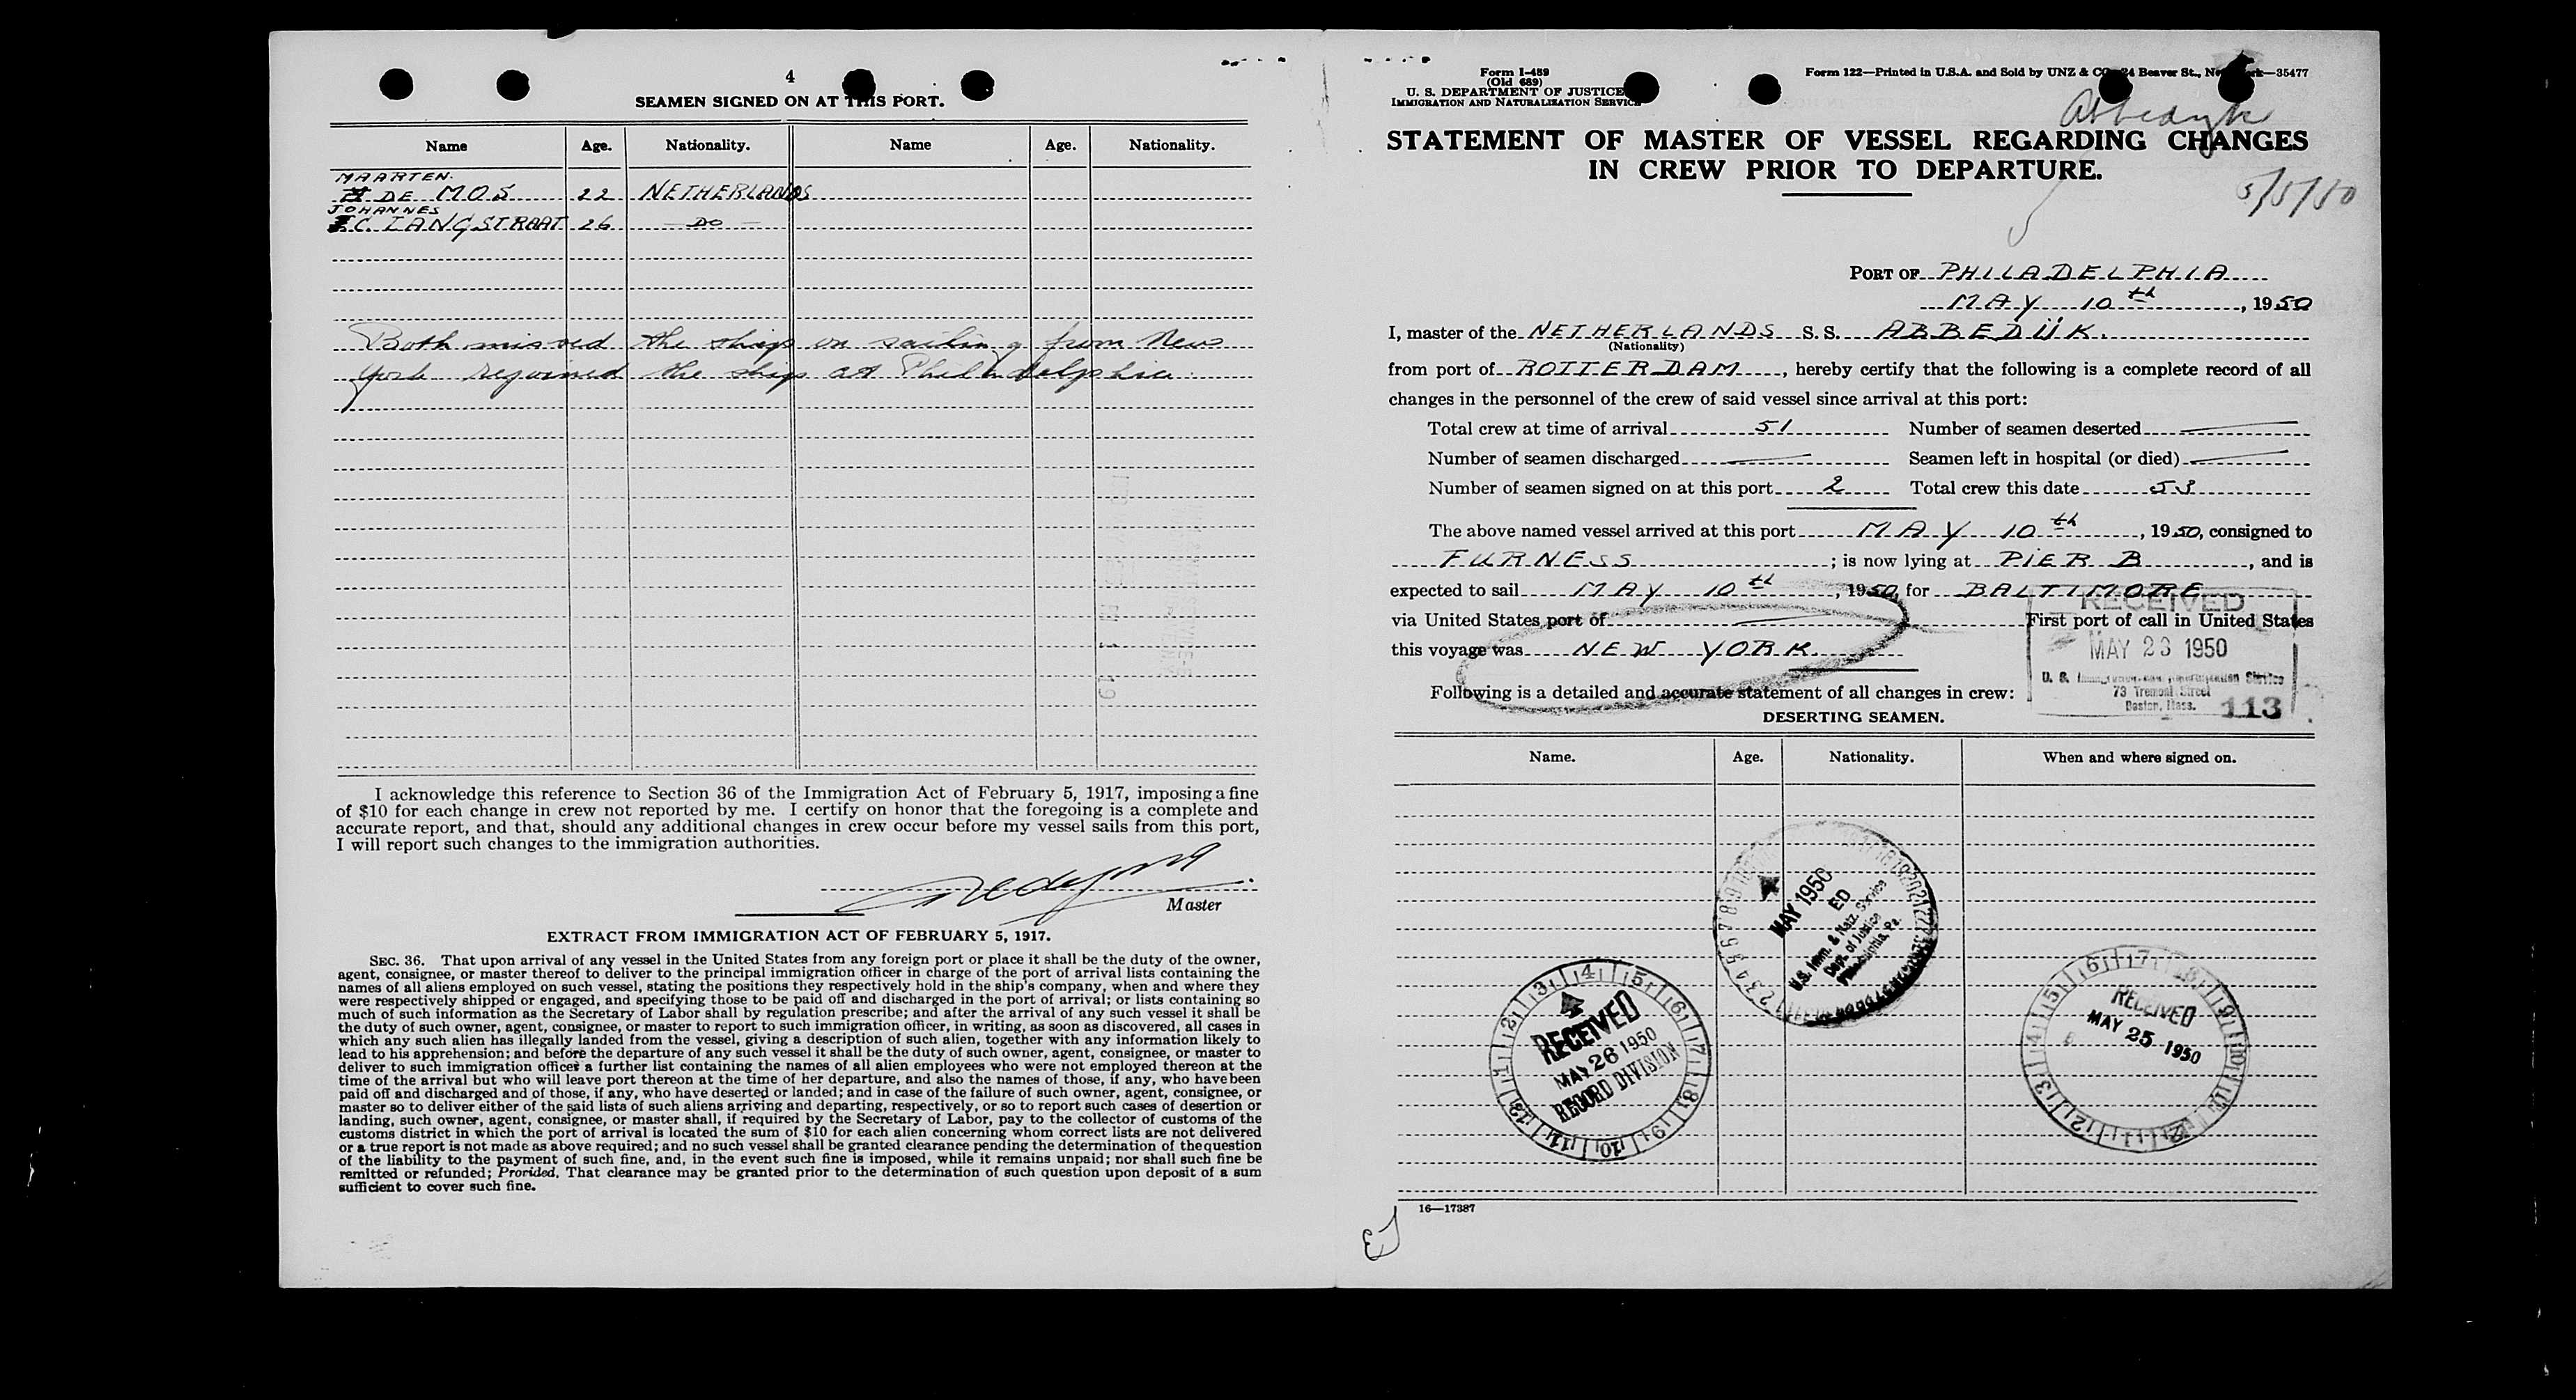 4
SEAMEN SIGNED ON AT THIS PORT.
Name Age. Nationality. Name Age. Nationality.
MAARTEN.
DE MOS 22 NETHERLANDS
JOHANNES
C. LANGSTRAAT 26 — DO —
Both missed the ship on sailing from New
York rejoined the ship at Philadelphia.
I acknowledge this reference to Section 36 of the Immigration Act of February 5, 1917, imposing a fine
of $10 for each change in crew not reported by me. I certify on honor that the foregoing is a complete and
accurate report, and that, should any additional changes in crew occur before my vessel sails from this port,
I will report such changes to the immigration authorities.
Master
EXTRACT FROM IMMIGRATION ACT OF FEBRUARY 5, 1917.
SEC. 36. That upon arrival of any vessel in the United States from any foreign port or place it shall be the duty of the owner,
agent, consignee, or master thereof to deliver to the principal immigration officer in charge of the port of arrival lists containing the
names of all aliens employed on such vessel, stating the positions they respectively hold in the ship's company, when and where they
were respectively shipped or engaged, and specifying those to be paid off and discharged in the port of arrival; or lists containing so
much of such information as the Secretary of Labor shall by regulation prescribe; and after the arrival of any such vessel it shall be
the duty of such owner, agent, consignee, or master to report to such immigration officer, in writing, as soon as discovered, all cases in
which any such alien has illegally landed from the vessel, giving a description of such alien, together with any information likely to
lead to his apprehension; and before the departure of any such vessel it shall be the duty of such owner, agent, consignee, or master to
deliver to such immigration officer a further list containing the names of all alien employees who were not employed thereon at the
time of the arrival but who will leave port thereon at the time of her departure, and also the names of those, if any, who have been
paid off and discharged and of those, if any, who have deserted or landed; and in case of the failure of such owner, agent, consignee, or
master so to deliver either of the said lists of such aliens arriving and departing, respectively, or so to report such cases of desertion or
landing, such owner, agent, consignee, or master shall, if required by the Secretary of Labor, pay to the collector of customs of the
customs district in which the port of arrival is located the sum of $10 for each alien concerning whom correct lists are not delivered
or a true report is not made as above required; and no vessel shall be granted clearance pending the determination of the question
of the liability to the payment of such fine, and, in the event such fine is imposed, while it remains unpaid; nor shall such fine be
remitted or refunded; Provided, That clearance may be granted prior to the determination of such question upon deposit of a sum
sufficient to cover such fine.
Form I-489
(Old 689)
U. S. DEPARTMENT OF JUSTICE
IMMIGRATION AND NATURALIZATION SERVICE
Form 122—Printed in U.S.A. and Sold by UNZ & CO., 24 Beaver St., New York—35477
Abbedyk
STATEMENT OF MASTER OF VESSEL REGARDING CHANGES
IN CREW PRIOR TO DEPARTURE.
5/5/50
PORT OF PHILADELPHIA
MAY 10th, 1950
I, master of the NETHERLANDS S. S. ABBEDIJK.
(Nationality)
from port of ROTTERDAM, hereby certify that the following is a complete record of all
changes in the personnel of the crew of said vessel since arrival at this port:
Total crew at time of arrival 51 Number of seamen deserted —
Number of seamen discharged — Seamen left in hospital (or died) —
Number of seamen signed on at this port 2 Total crew this date 53
The above named vessel arrived at this port MAY 10th, 1950, consigned to
FURNESS; is now lying at PIER B, and is
expected to sail MAY 10th, 1950, for BALTIMORE
via United States port of — First port of call in United States
this voyage was NEW YORK.
RECEIVED
MAY 23 1950
U. S. Immigration and Naturalization Service
73 Tremont Street
Boston, Mass. 113
Following is a detailed and accurate statement of all changes in crew:
DESERTING SEAMEN.
Name. Age. Nationality. When and where signed on.
MAY 1950
ED
U.S. Imm. & Natz. Service
Dept. of Justice
Philadelphia, Pa.
RECEIVED
MAY 26 1950
RECORD DIVISION
RECEIVED
MAY 25 1950
16—17387